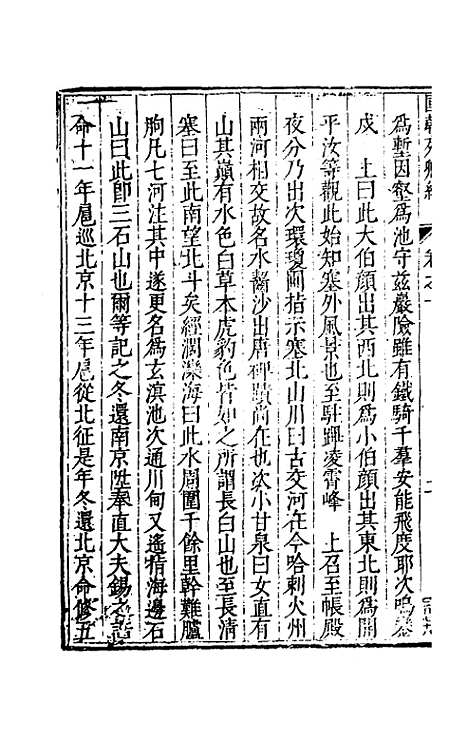 國朝列卿紀　卷之十
爲塹因壑爲池守茲嚴險雖有鐵騎千羣安能飛度耶次鳴鑾
戍　上曰此大伯顔出其西北則爲小伯顔出其東北則爲開
平汝等觀此始知塞外風景也至駐蹕凌霄峰　上召至帳殿
夜分乃出次環瓊阿指示塞北山川曰古交河在今哈剌火州
兩河相交故名水齧沙出唐碑蹟尚在也次小甘泉曰女直有
山其巔有水色白草木虎豹色皆如之所謂長白山也至長清
塞曰至此南望北斗矣經濶灤海曰此水周圍千餘里幹難臚
朐凡七河注其中遂更名爲玄溟池次通川甸又遙指海邊石
山曰此卽三石山也爾等記之冬還南京陞奉直大夫錫之誥
命十一年扈巡北京十三年扈從北征是年冬還北京命修五